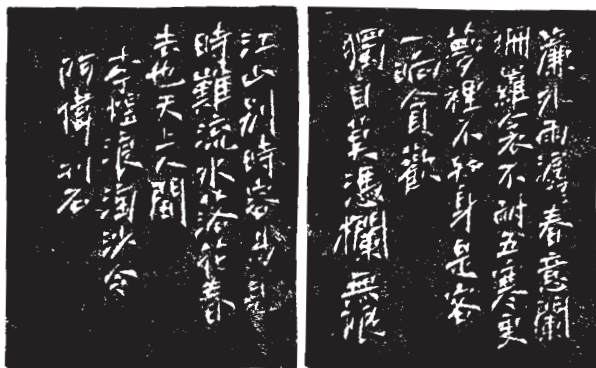 簾外雨潺潺春意闌
珊羅衾不耐五寒更
夢裡不知身是客
一晌貪歡
獨自莫憑欄無限
江山別時容易見
時難流水落花春
去也天上人間
李煜浪淘沙令
阿偉刻石